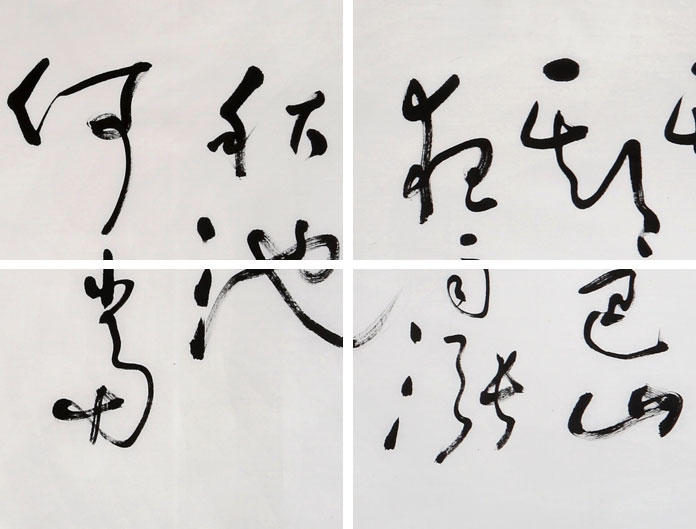 期巴山
夜雨漲
秋池
何當